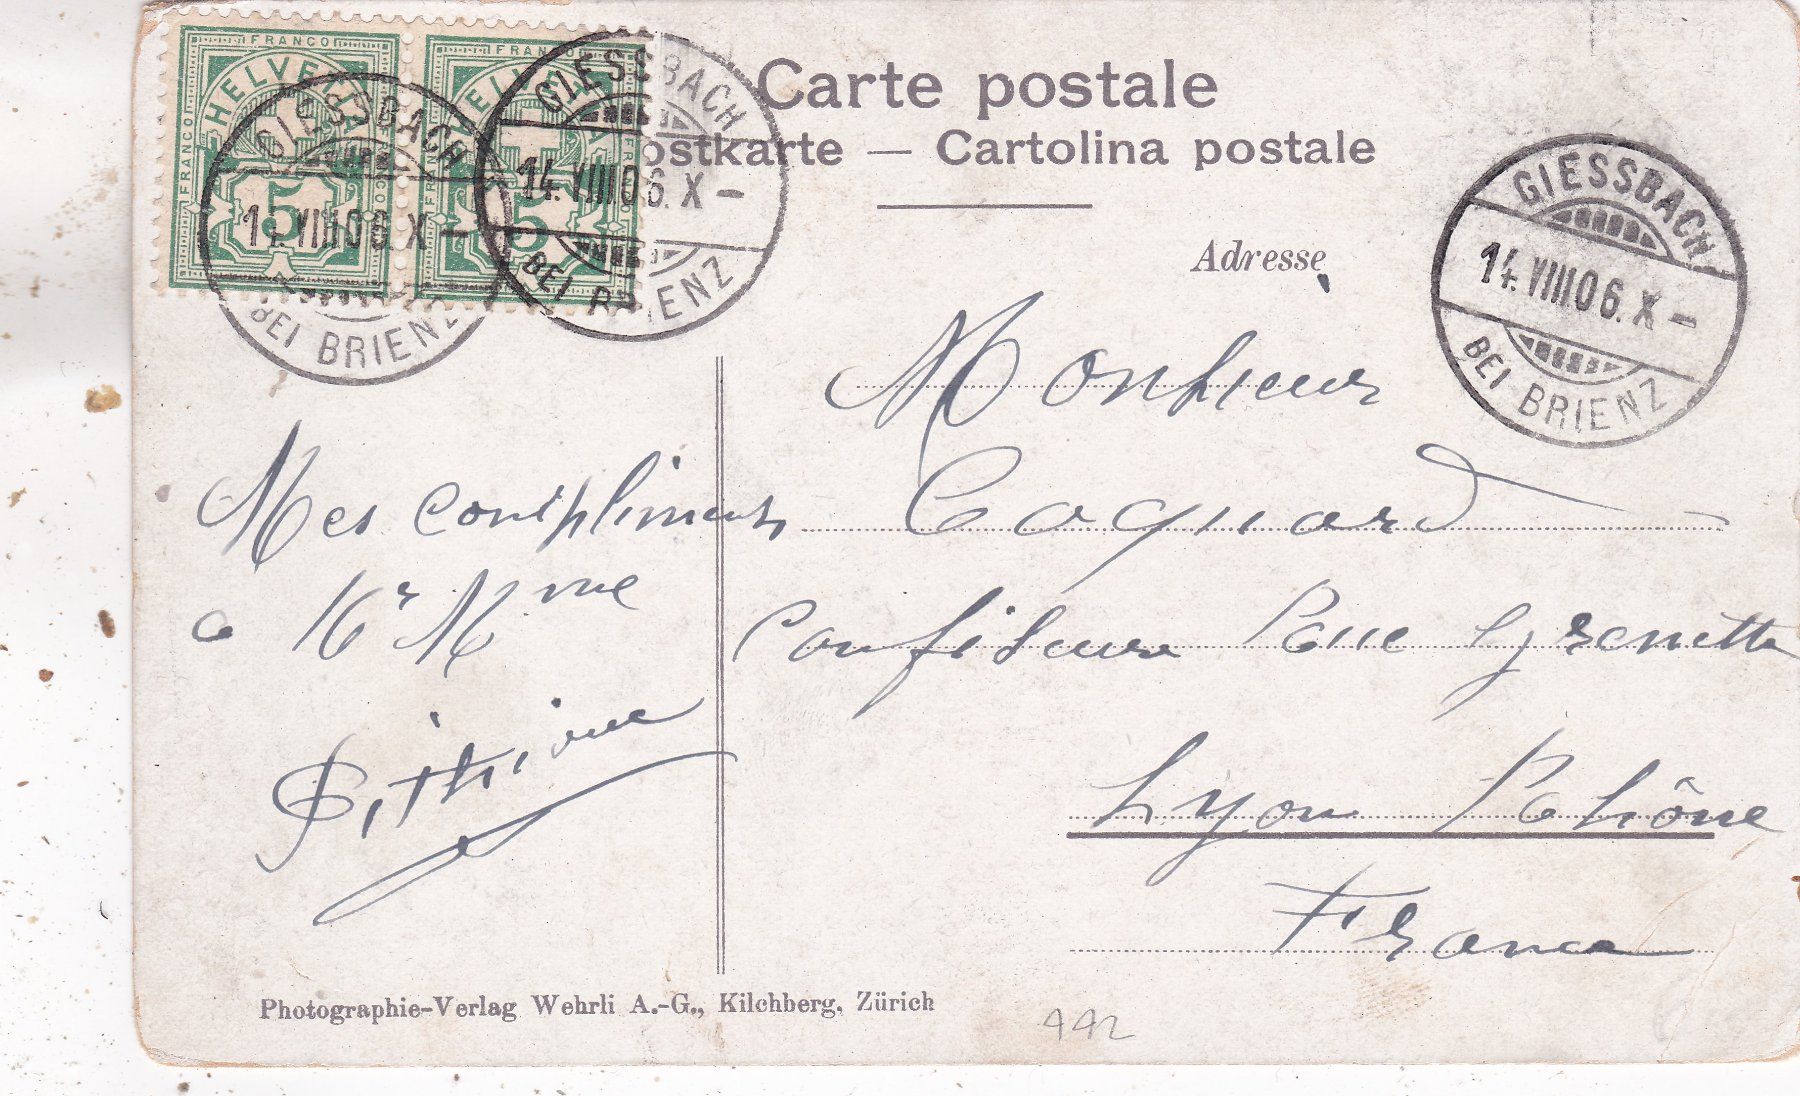 FRANCO FRANCO
HELVETIA HELVETIA
FRANCO FRANCO
5 5
GIESSBACH
14. VIII 06. X –
BEI BRIENZ
GIESSBACH
14. VIII 06. X –
BEI BRIENZ
Carte postale
Postkarte — Cartolina postale
GIESSBACH
14. VIII 06. X –
BEI BRIENZ
Adresse
Monsieur
Coquard
Confiseur Rue Grenette
Lyon Rhône
France
Mes compliments
a Mr Mme
Photographie-Verlag Wehrli A.-G., Kilchberg, Zürich
442